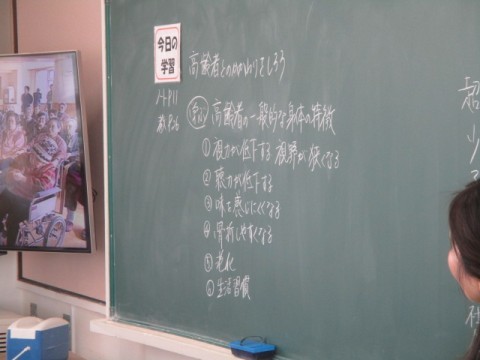 今日の
学習
高齢者とのかかわりをしろう
ノートP11
教P.26
高齢者の一般的な身体の特徴
①視力が低下する 視界が狭くなる
②聴力が低下する
③味を感じにくくなる
④骨折しやすくなる
⑤老化
⑥生活習慣
超
少